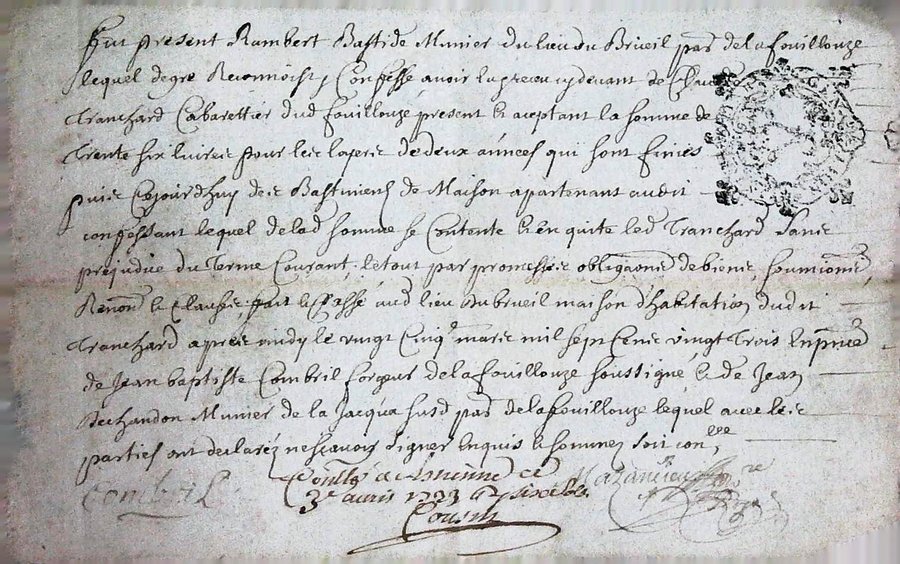 fut present Rambert Bastide Munier du lieu du Brueil parr de la fouillouze
lequel de gre Reconnoist & Confesse avoir heu & receu cydevant de Claude
Tranchard Cabarettier dud fouillouze present & aceptant la somme de
Trente six livres pour les loyers de deux années qui sont finies
puis Cejourdhuy des Bastiments de Maison apartenant audit
confessant lequel de lad somme se Contente & en quite led Tranchard sans
prejudice du Terme Courant le tout par promesses obligaons de biens soumions
Renons & Clauses fait & passé aud lieu du brueil maison d'habitation dudit
Tranchard apres midy le vingt Cinqe mars mil sept Cens vingt Trois En pnce
de Jean baptiste Combril forgeur de la fouillouze soussigné & de Jean
Dechandon Munier de la Jacqua susd parr de la fouillouze lequel avec les
parties ont declaré ne sçavoir signer enquis & sommez soit conllé
Combril
Conllé a St Estienne ce
3e avril 1723
Cousin